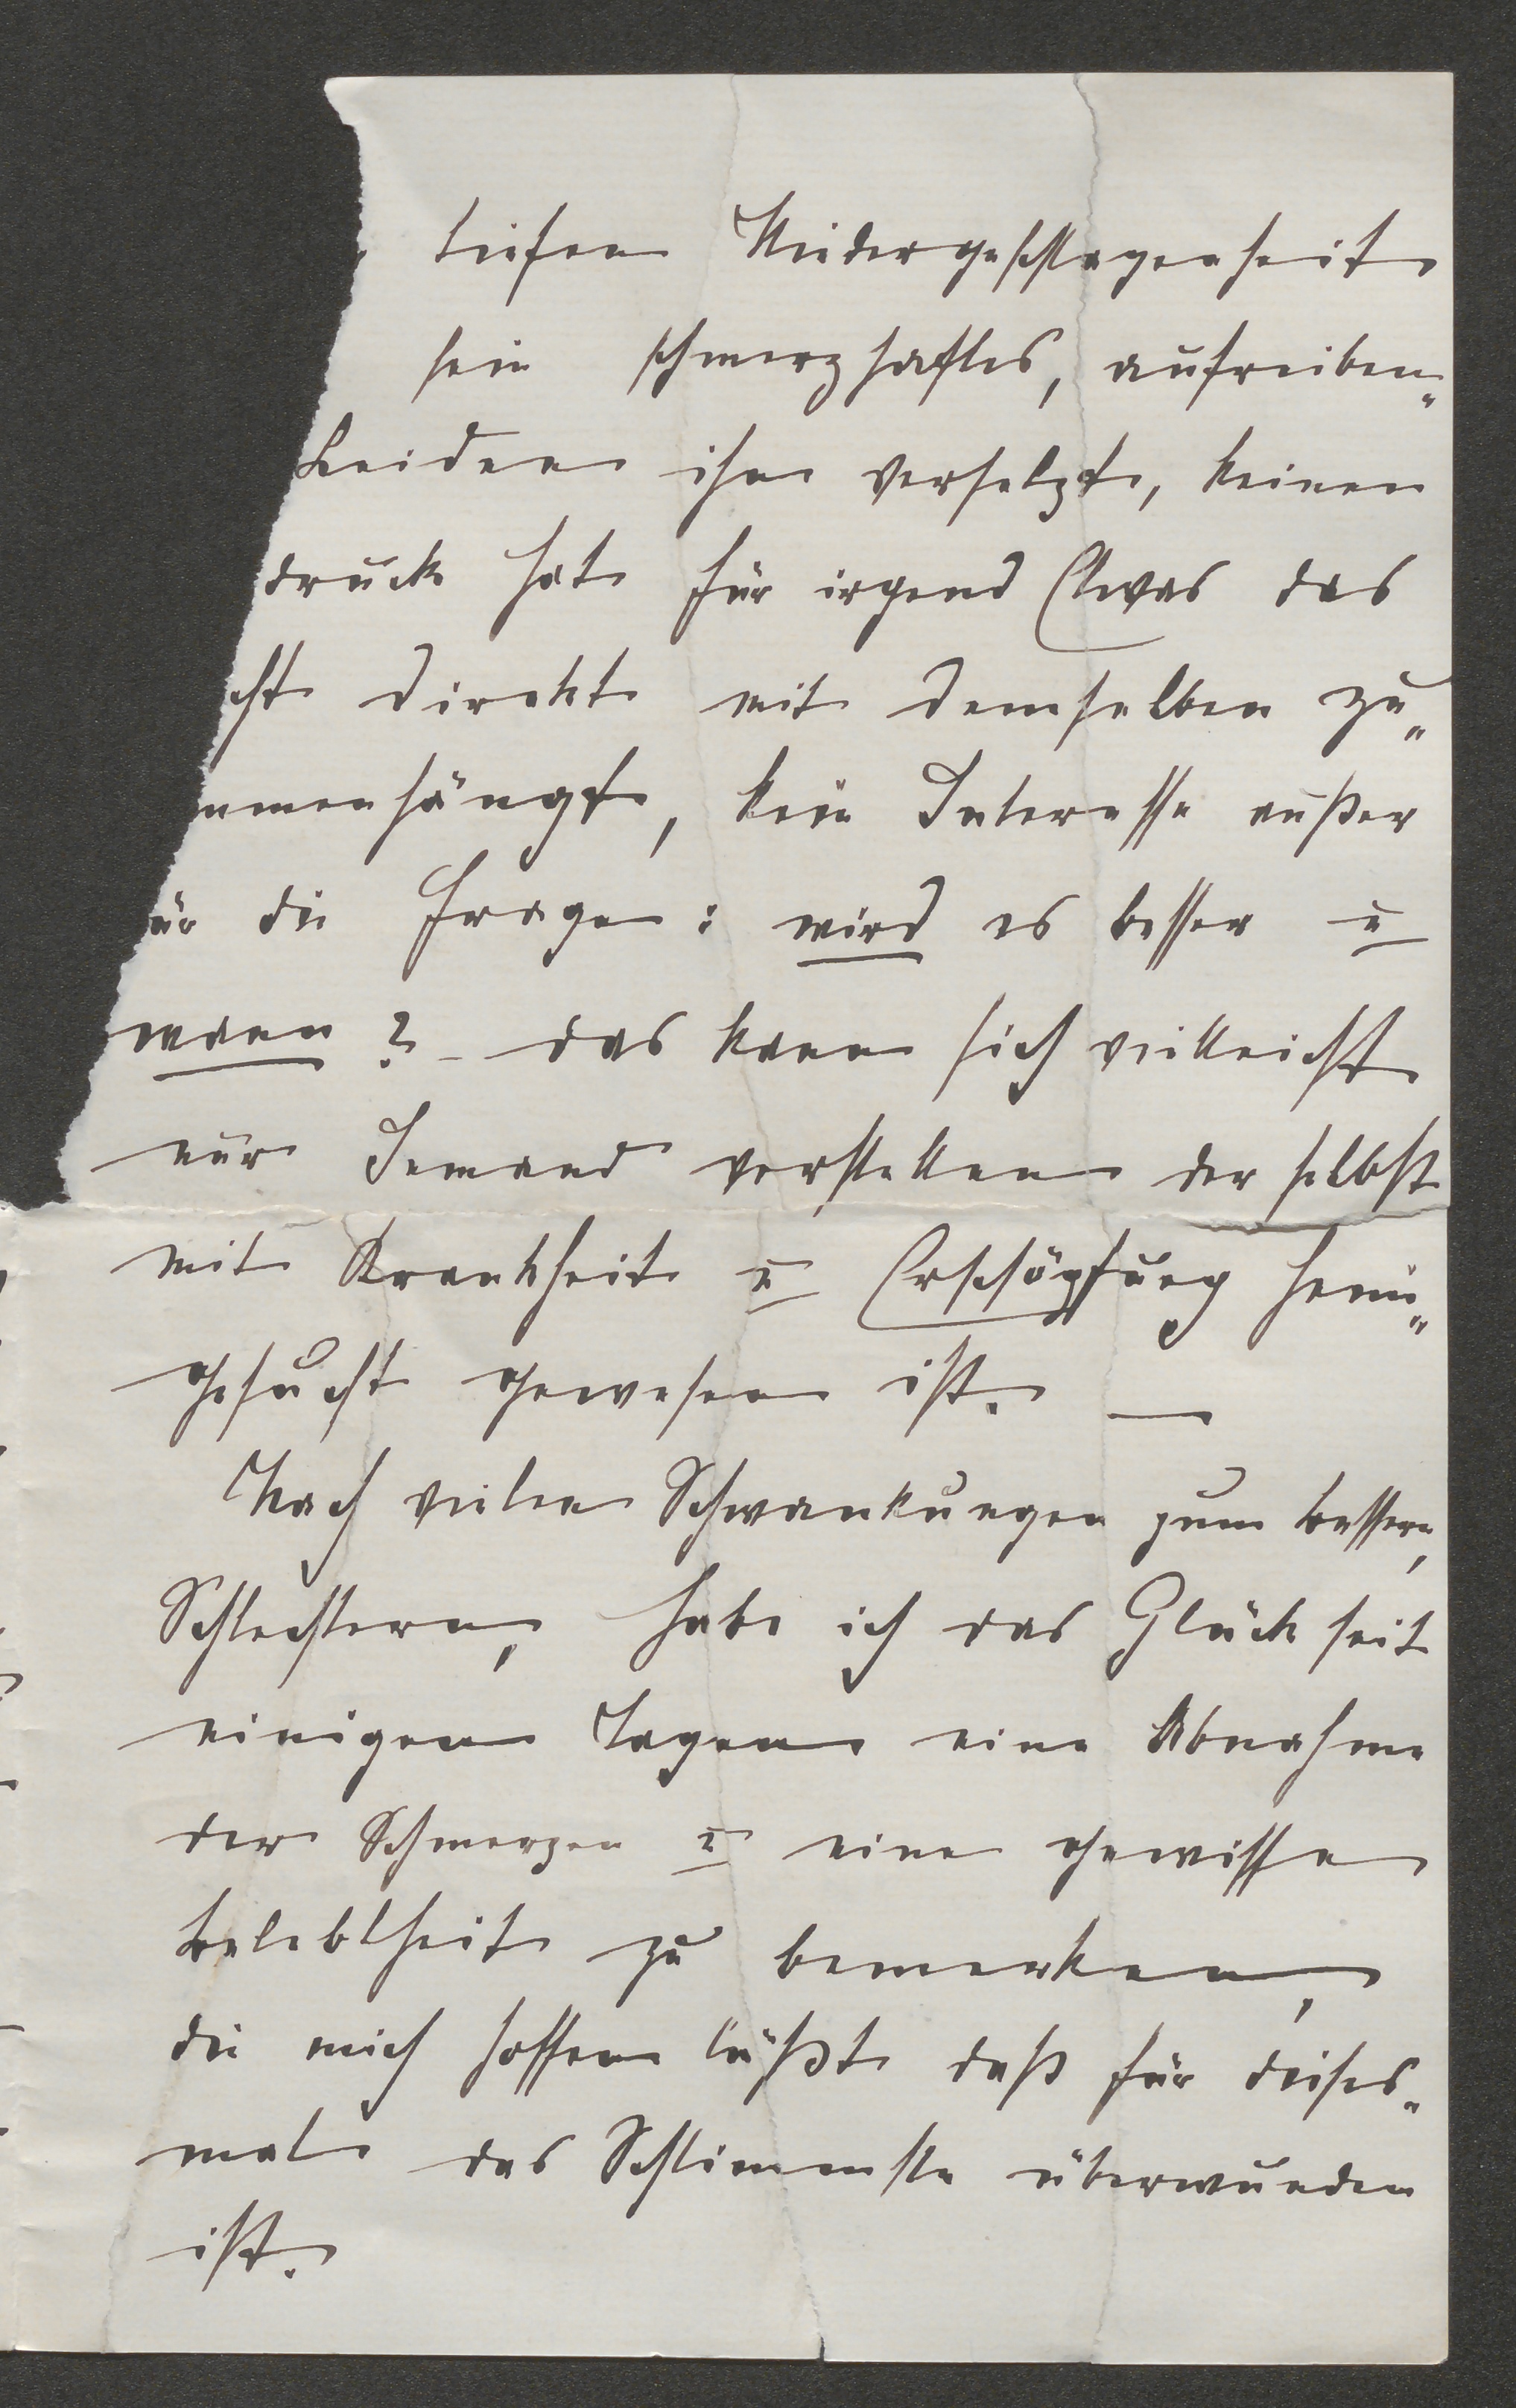 tiefen Niedergeschlagenheit
sein schmerzhaftes, aufreiben„
Leiden ihn versetzt, keinen
druck hat für irgend Etwas das
cht direkt mit demselben zu„
mmenhängt, kein Interesse außer
ür die Frage: wird es besser u
wann? – das kann sich vielleicht
nur Jemand vorstellen der selbst
mit Krankheit u Erschöpfung heim„
gesucht gewesen ist. —
Nach vielen Schwankungen zum bessern,
Schlechtern, habe ich das Glück seit
einigen Tagen eine Abnahme
der Schmerzen u eine gewisse
Belebtheit zu bemerken,
die mich hoffen läßt daß für dieses„
mal das Schlimmste überwunden
ist.